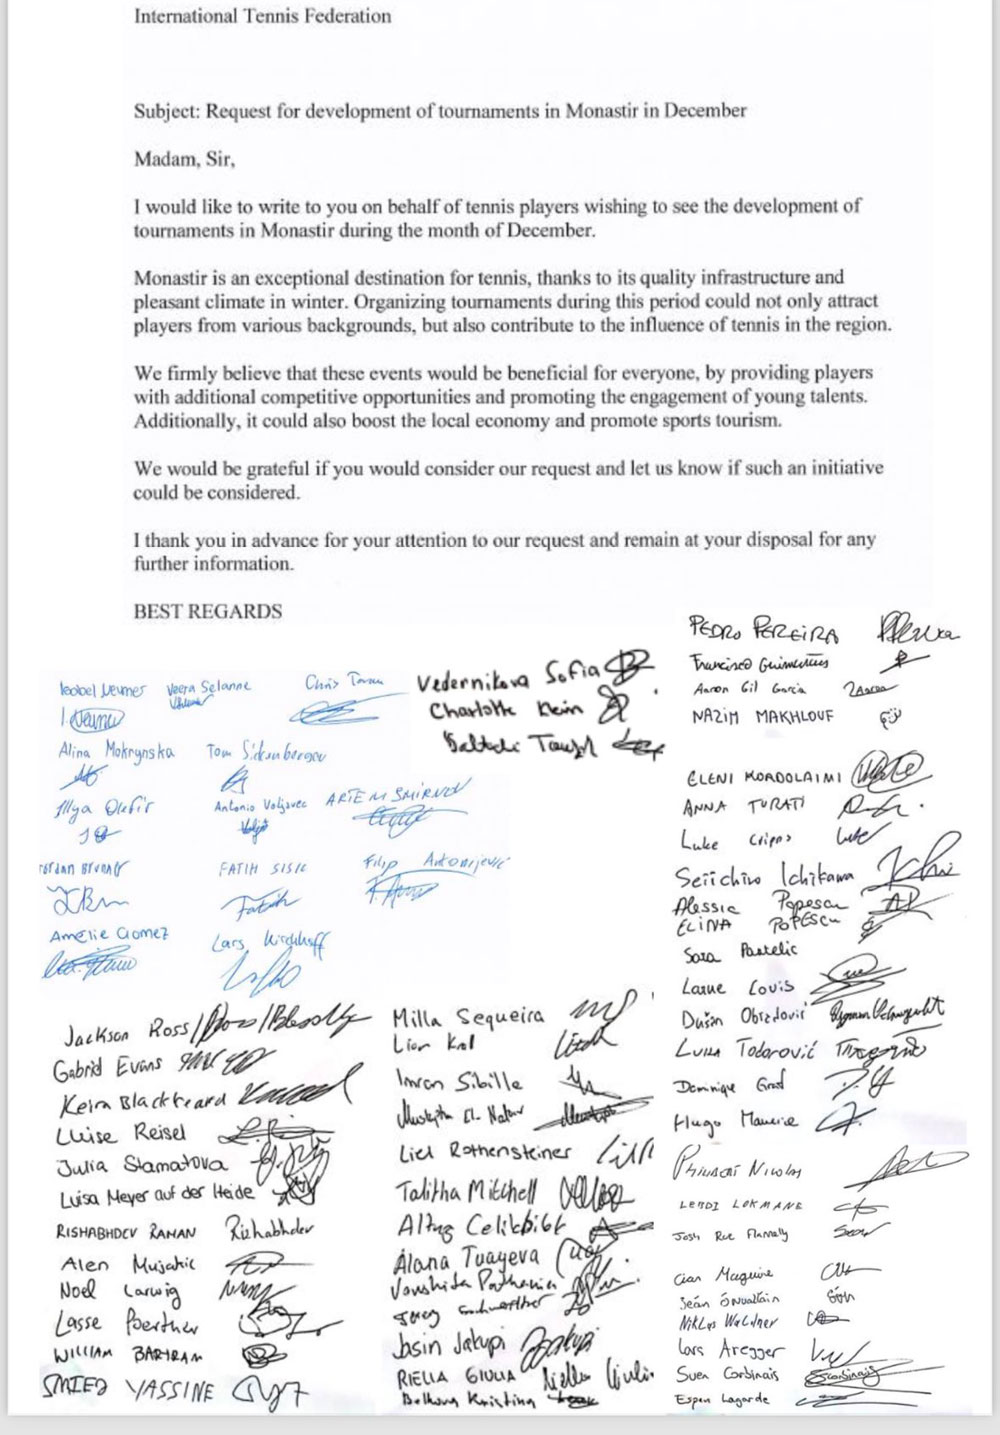 International Tennis Federation
Subject: Request for development of tournaments in Monastir in December
Madam, Sir,
I would like to write to you on behalf of tennis players wishing to see the development of
tournaments in Monastir during the month of December.
Monastir is an exceptional destination for tennis, thanks to its quality infrastructure and
pleasant climate in winter. Organizing tournaments during this period could not only attract
players from various backgrounds, but also contribute to the influence of tennis in the region.
We firmly believe that these events would be beneficial for everyone, by providing players
with additional competitive opportunities and promoting the engagement of young talents.
Additionally, it could also boost the local economy and promote sports tourism.
We would be grateful if you would consider our request and let us know if such an initiative
could be considered.
I thank you in advance for your attention to our request and remain at your disposal for any
further information.
BEST REGARDS
Veera Selanne
Chris
Alina Mokrynska
Tom
Illya
Antonio Voljavec
ARTEM SMIRNOV
FATIH SISIC
Fatih
Filip Antonijevic
Amélie Gomez
Lars Kirchhoff
Vedernikova Sofia
Charlotte Klein
PEDRO PEREIRA
Francisco Guimarães
Aaron Gil Garcia
NAZIM MAKHLOUF
ELENI KORDOLAIMI
ANNA TURATI
Luke
Seiichiro Ichikawa
Alessia Popescu
ELINA POPESCU
Sara
Larue Louis
Dušan Obradović
Luka Todorović
Dominique Graf
Hugo
Nicolas
LOKMANE
Josh
Cian Maguire
Seán
Niklas Waldner
Lars Aregger
Sven Corbinais
Espen Lagarde
Jackson Ross
Gabriel Evans
Keira Blackbeard
Luise Reisel
Julia Stamatova
Luisa Meyer auf der Heide
RISHABHDEV RAMAN Rishabhdev
Alen Mujakic
Noel Larwig
Lasse Poertner
WILLIAM BARTRAM
SMIED YASSINE
Milla Sequeira
Lior
Imran Sibille
Liel Rothensteiner
Talitha Mitchell
Altug Celikbilek
Alana Tuayeva
Vanshita Pathania
Jasin Jakupi
RIELLA GIULIA